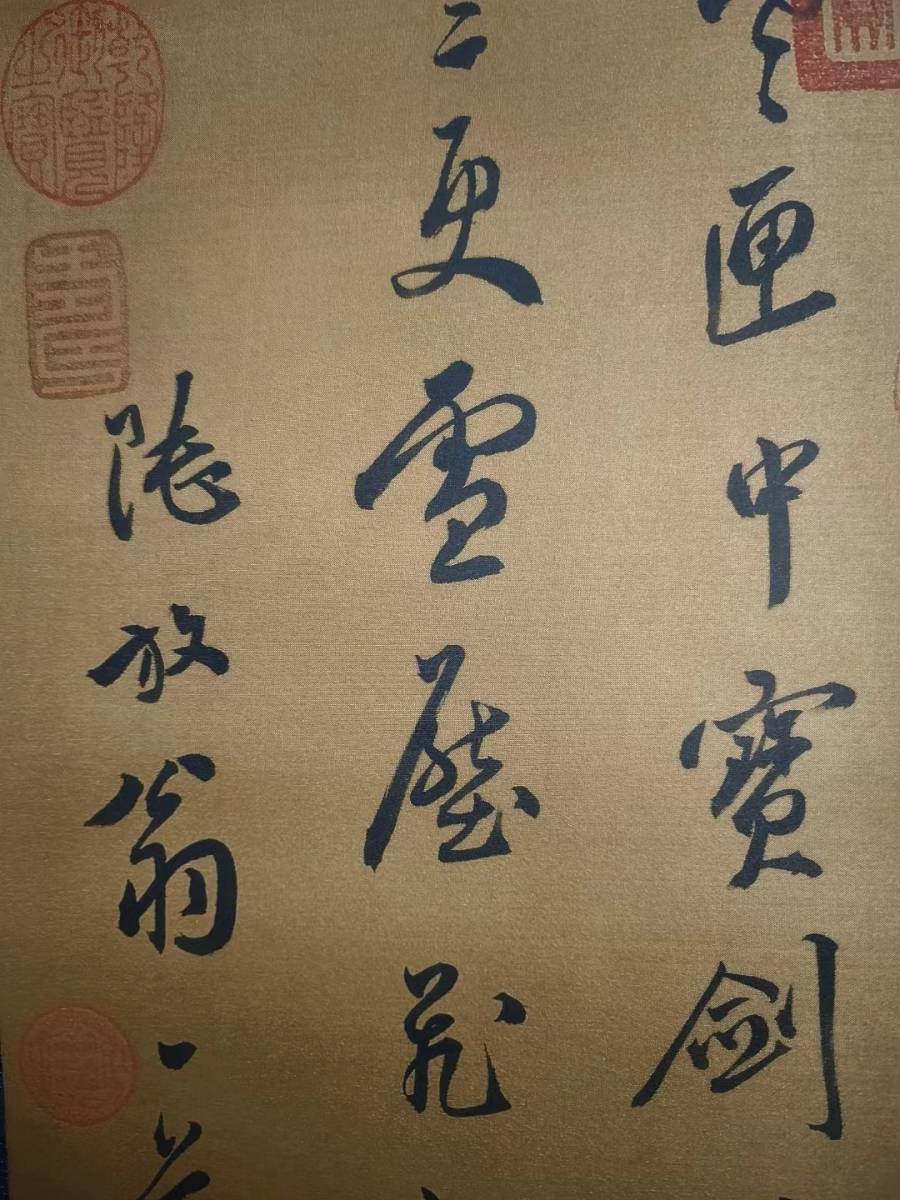 匣中寶劍
三更雪壓飛
陸放翁一
乾隆御覽之寶